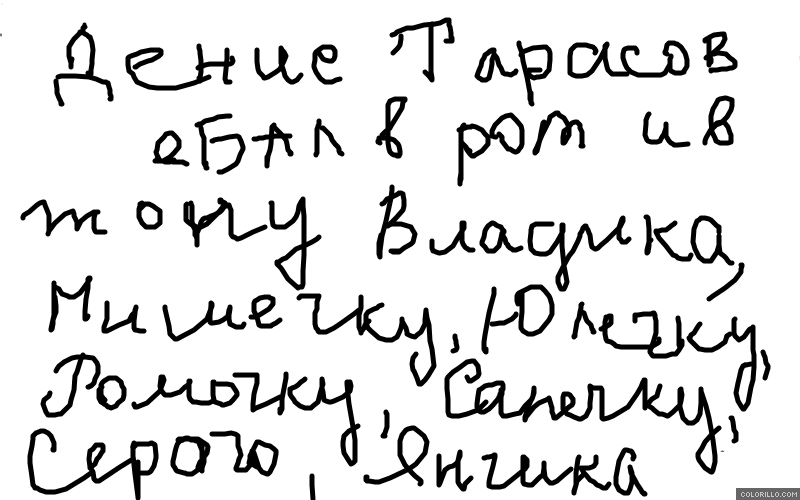 Денис Тарасов
еБАл в рот и в
жопу Владика,
Мишечку, Юлечку,
Ромочку, Санечку,
Серого, Янчика
COLORILLO.COM